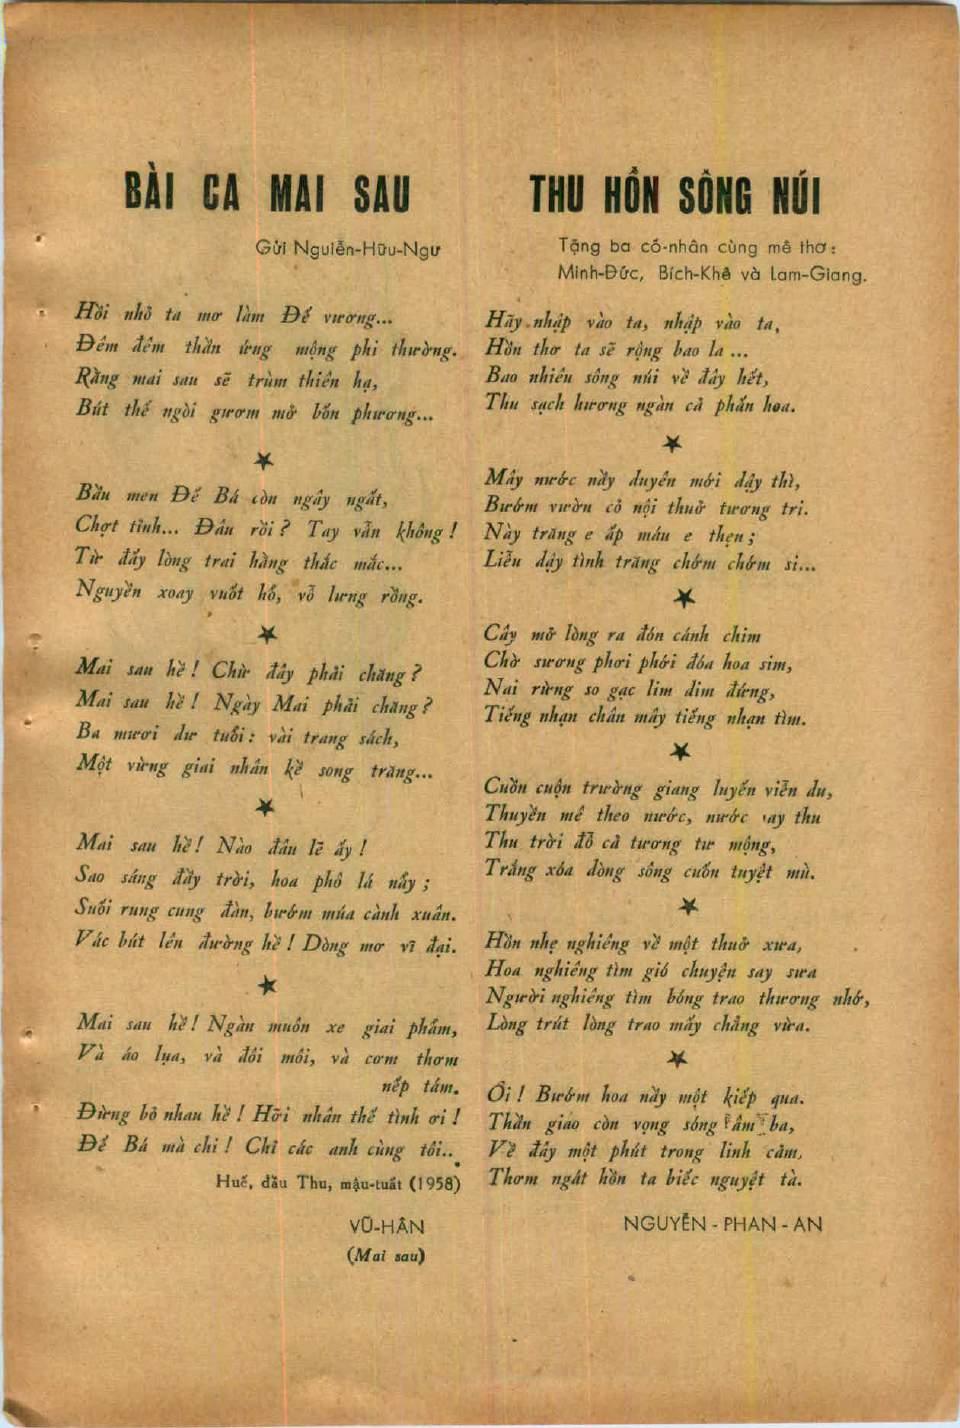 BÀI CA MAI SAU
Gửi Nguiễn-Hữu-Ngư
Hồi nhỏ ta mơ làm Đế vương...
Đêm đêm thần ứng mộng phi thường.
Rằng mai sau sẽ trùm thiên hạ,
Bút thế ngòi gươm mở bốn phương...
★
Bầu men Đế Bá còn ngây ngất,
Chợt tỉnh... Đâu rồi ? Tay vẫn không !
Từ đấy lòng trai hằng thắc mắc...
Nguyền xoay vuốt hổ, vỗ lưng rồng.
★
Mai sau hề ! Chừ đây phải chăng ?
Mai sau hề ! Ngày Mai phải chăng ?
Ba mươi dư tuổi : vài trang sách,
Một vừng giai nhân kề song trăng...
★
Mai sau hề ! Nào đâu lẽ ấy !
Sao sáng đầy trời, hoa phô lá nẩy ;
Suối rung cung đàn, bướm múa cành xuân.
Vác bút lên đường hề ! Dòng mơ vĩ đại.
★
Mai sau hề ! Ngàn muôn xe giai phẩm,
Và áo lụa, và đôi môi, và cơm thơm
nếp tám.
Đừng bỏ nhau hề ! Hỡi nhân thế tình ơi !
Đế Bá mà chi ! Chỉ các anh cùng tôi...
Huế, đầu Thu, mậu-tuất (1958)
VŨ-HÂN
(Mai sau)
THU HỒN SÔNG NÚI
Tặng ba cố-nhân cùng mê thơ :
Minh-Đức, Bích-Khê và Lam-Giang.
Hãy nhập vào ta, nhập vào ta,
Hồn thơ ta sẽ rộng bao la ...
Bao nhiêu sông núi về đây hết,
Thu sạch hương ngàn cả phấn hoa.
★
Mây nước nầy duyên mới dậy thì,
Bướm vườn cỏ nội thuở tương tri.
Này trăng e ấp máu e thẹn ;
Liễu dậy tình trăng chớm chớm si...
★
Cây mở lòng ra đón cánh chim
Chờ sương phơi phới đóa hoa sim,
Nai rừng so gạc lim dim đứng,
Tiếng nhạn chân mây tiếng nhạn tìm.
★
Cuồn cuộn trường giang luyến viễn du,
Thuyền mê theo nước, nước say thu
Thu trời đỗ cả tương tư mộng,
Trắng xóa dòng sông cuốn tuyệt mù.
★
Hồn nhẹ nghiêng về một thuở xưa,
Hoa nghiêng tìm gió chuyện say sưa
Người nghiêng tìm bóng trao thương nhớ,
Lòng trút lòng trao mấy chẳng vừa.
★
Ôi ! Bướm hoa nầy một kiếp qua.
Thần giao còn vọng sóng âm ba,
Về đây một phút trong linh cảm,
Thơm ngát hồn ta biếc nguyệt tà.
NGUYỄN - PHAN - AN